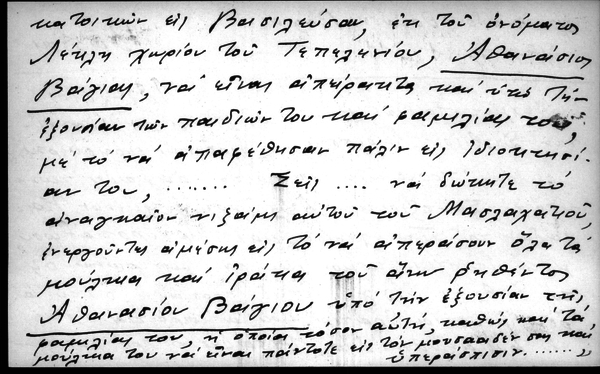 κατοικῶν εἰς Βασιλεύσαν, ἐκ τοῦ ὀνόματος
Λέκλη χωρίου τοῦ Τεπελενίου, Ἀθανάσιος
Βάγιας, νά εἶναι ἀπείρακτα καί ὑπό τήν
ἐξουσίαν τῶν παιδιῶν του καί φαμιλίας του,
μέ τό νά ἀπαρέθησαν πάλιν εἰς ἰδιοκτησί-
αν του, ....... Σεῖς .... νά δώκητε τό
ἀναγκαῖον νιζάμι αὐτοῦ τοῦ Μασλαχατιοῦ,
ἐνεργοῦντες ἀμέσως εἰς τό νά ἀπεράσουν ὅλα τά
μούλκια καί ἰράκια τοῦ ἄνω ῥηθέντος
Ἀθανασίου Βάγιου ὑπό τήν ἐξουσίαν τῆς
φαμιλίας του, ἡ ὁποία τόσον αὐτή, καθώς καί τά
μούλκια του νά εἶναι πάντοτε εἰς τόν μουσααδέν σας καί
ὑπεράσπισιν.......,,